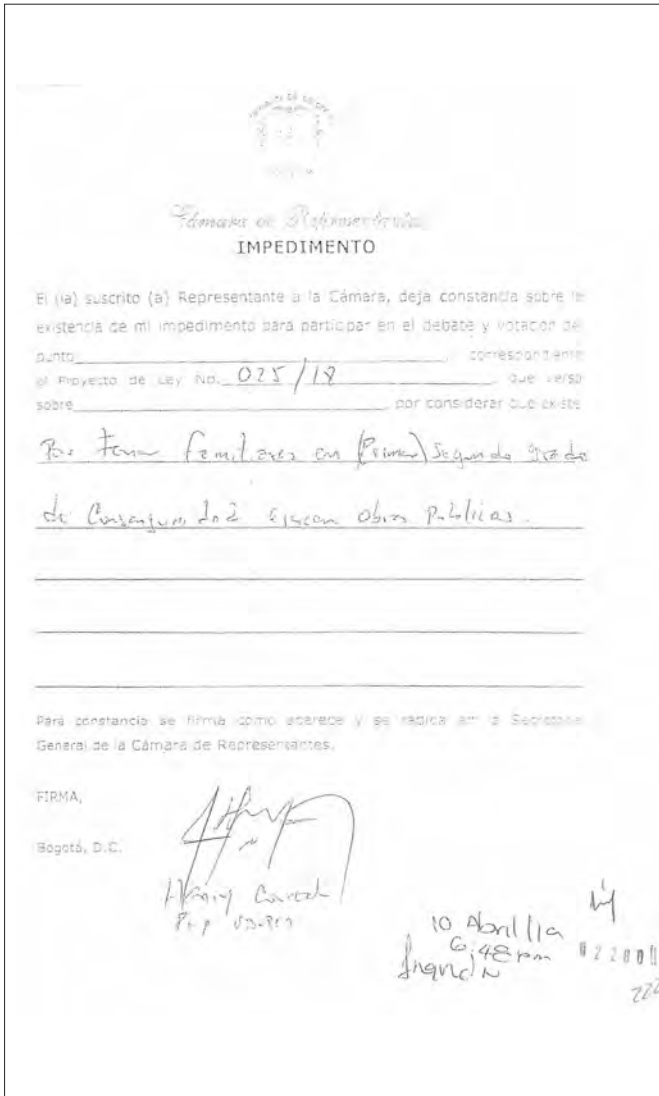 Cámara de Representantes
IMPEDIMENTO
El (la) suscrito (a) Representante a la Cámara, deja constancia sobre la
existencia de mi impedimento para participar en el debate y votación del
punto correspondiente
al Proyecto de Ley No. 025/18 que versa
sobre por considerar que existe
Por tener familiares en (Primer) Segundo grado
de obras Públicas.
Para constancia se firma como aparece y se radica en la Secretaria
General de la Cámara de Representantes.
FIRMA,
Bogotá, D.C.
10 Abril/19
6:48 pm